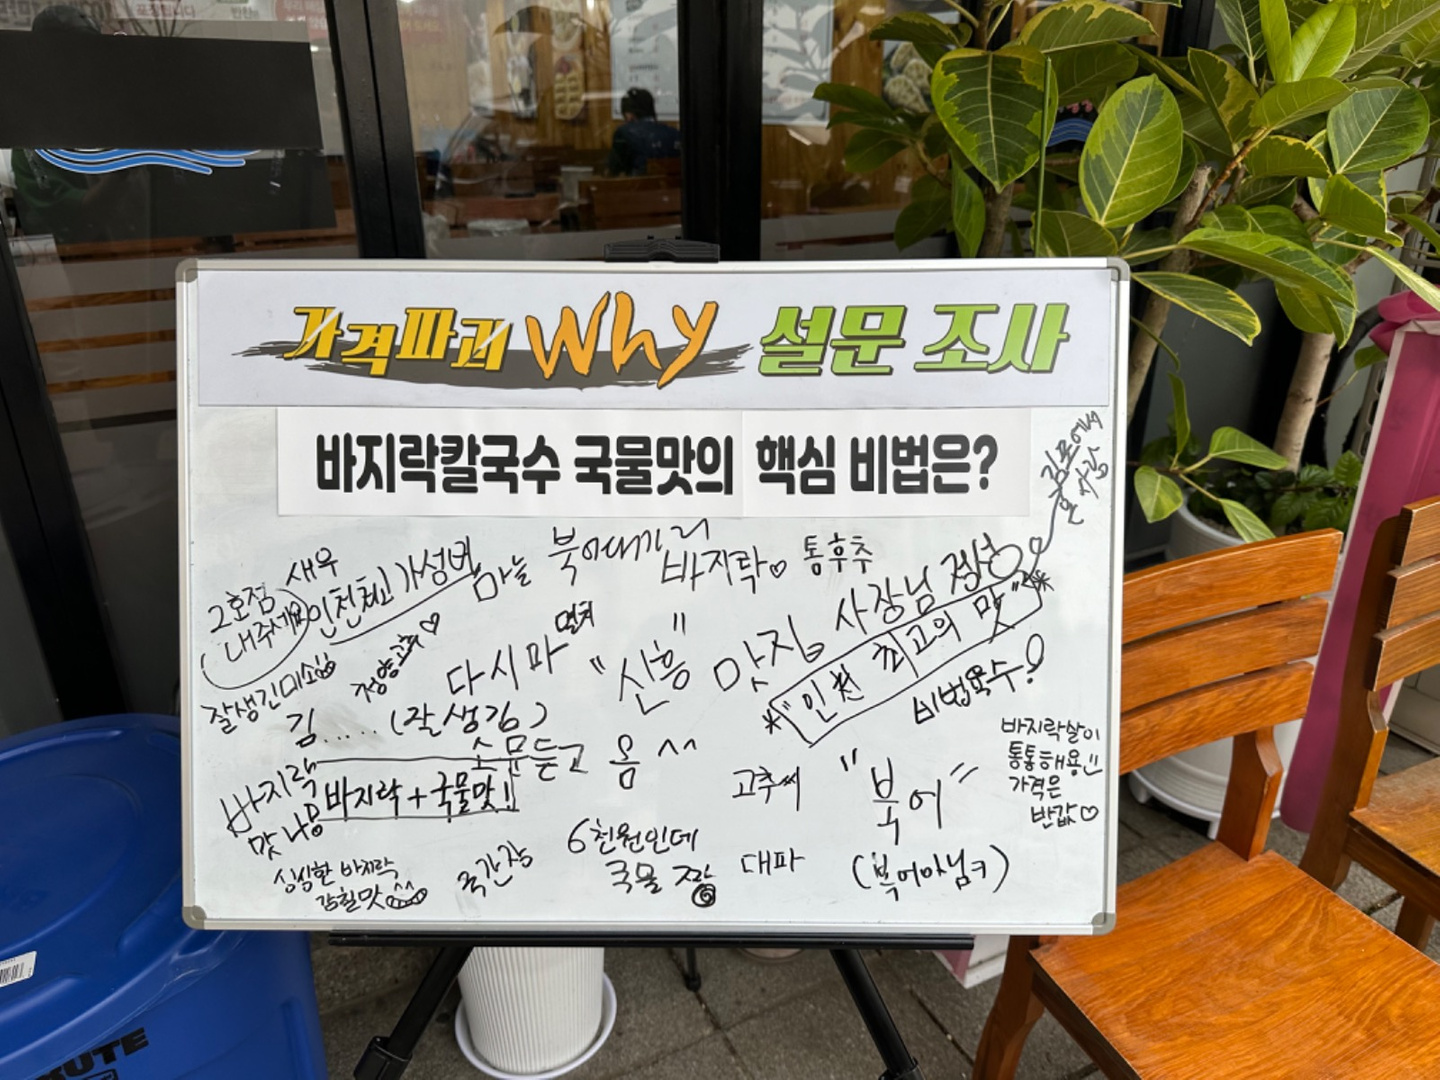 가격파괴 Why 설문 조사
바지락칼국수 국물맛의 핵심 비법은?
김포에서
온 사람
2호점
내주세요
새우
인천최고 가성비
마늘
북어대가리
바지락♡
통후추
잘생긴미소님
청양고추♡
다시마
멸치
"신흥"
맛집 사장님 짱
"인천 최고의 맛"
비법육수!
김..... (잘생김)
소문듣고 옴 ^^
바지락
맛나용
바지락+국물맛!!
고추씨
"북어"
(북어아님ㅋ)
바지락살이
통통해용!!
가격은
반값♡
싱싱한 바지락
감칠맛^^
국간장
6천원인데
국물 짱
대파
UTE